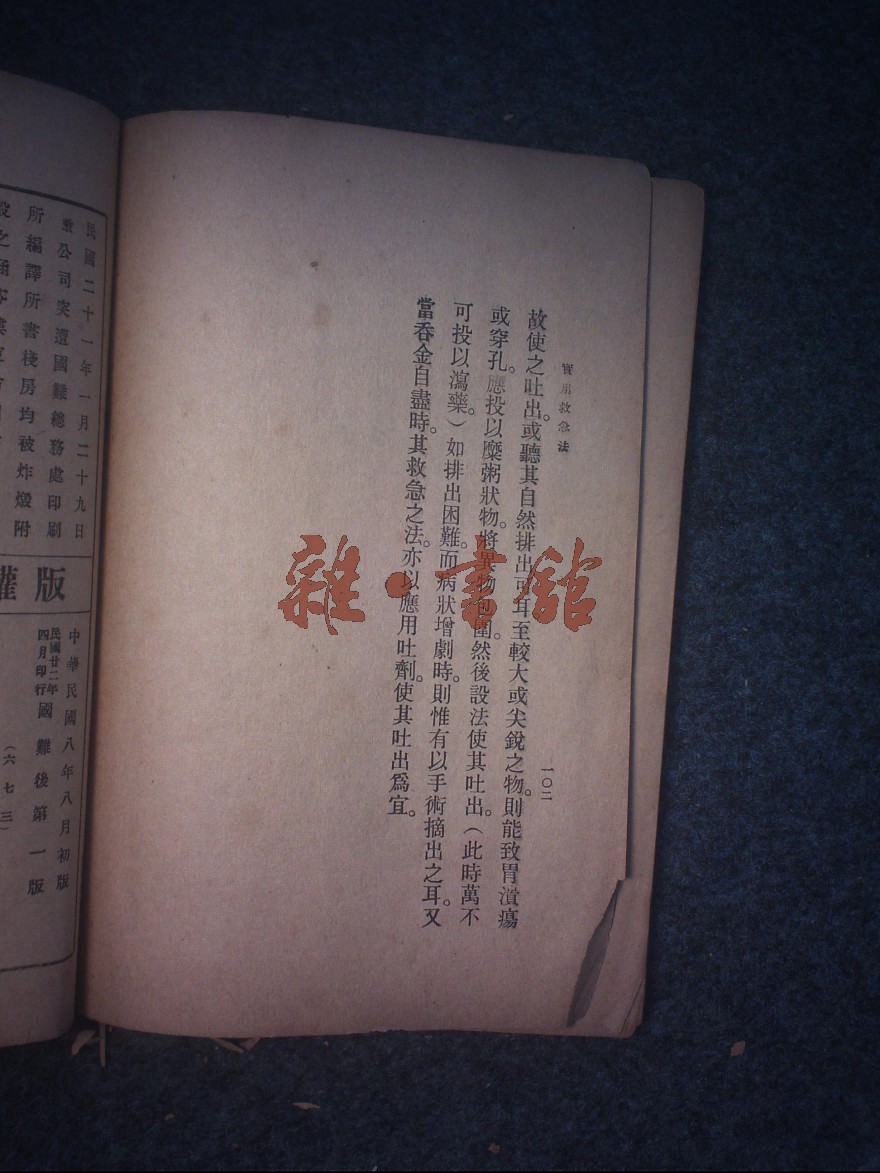 實用救急法
一〇二
故使之吐出。或聽其自然排出可耳至較大或尖銳之物。則能致胃潰瘍
或穿孔。應投以糜粥狀物。將異物包圍。然後設法使其吐出。(此時萬不
可投以瀉藥。)如排出困難。而病狀增劇時。則惟有以手術摘出之耳。又
當吞金自盡時。其救急之法。亦以應用吐劑。使其吐出爲宜。
雜·書館
民國二十一年一月二十九日
敝公司突遭國難總務處印刷
所編譯所書棧房均被炸燬附
設之涵芬樓
版權
中華民國八年八月初版
民國廿二年四月印行國難後第一版
(六七三)